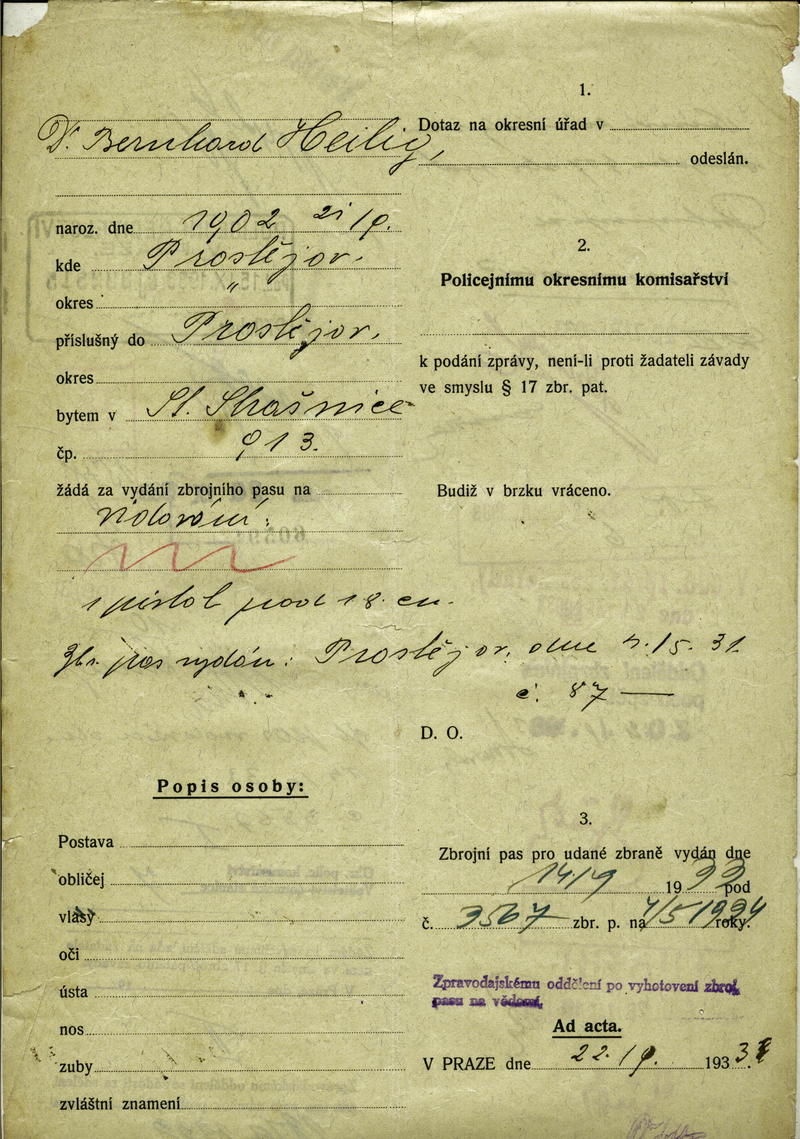 Dr. Bernhard Heilig,
naroz. dne 1902 21/9.
kde Prostějov.
okres "
příslušný do Prostějov.
okres
bytem v St. Strašnice
čp. 913.
žádá za vydání zbrojního pasu na
1 pistol pod 18 cm.
Zbr. pas vydán: Prostějov, dne
č. 87 —
Popis osoby:
Postava
obličej
vlasy
oči
ústa
nos
zuby
zvláštní znamení
1.
Dotaz na okresní úřad v
odeslán.
2.
Policejnímu okresnímu komisařství
k podání zprávy, není-li proti žadateli závady
ve smyslu § 17 zbr. pat.
Budiž v brzku vráceno.
D. O.
3.
Zbrojní pas pro udané zbraně vydán dne
14/9 1933 pod
č. 3567 zbr. p. na 4/5 1934 roky.
Zpravodajskému oddělení po vyhotovení zbroj.
pasu na vědomí.
Ad acta.
V PRAZE dne 22. 193